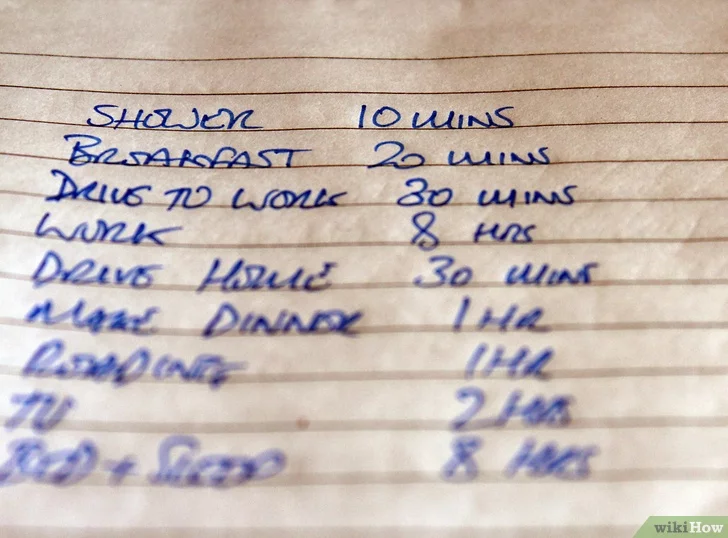 SHOWER 10 MINS
BREAKFAST 20 MINS
DRIVE TO WORK 30 MINS
WORK 8 HRS
DRIVE HOME 30 MINS
MAKE DINNER 1 HR
READING 1 HR
TV 2 HRS
BED + SLEEP 8 HRS
wikiHow